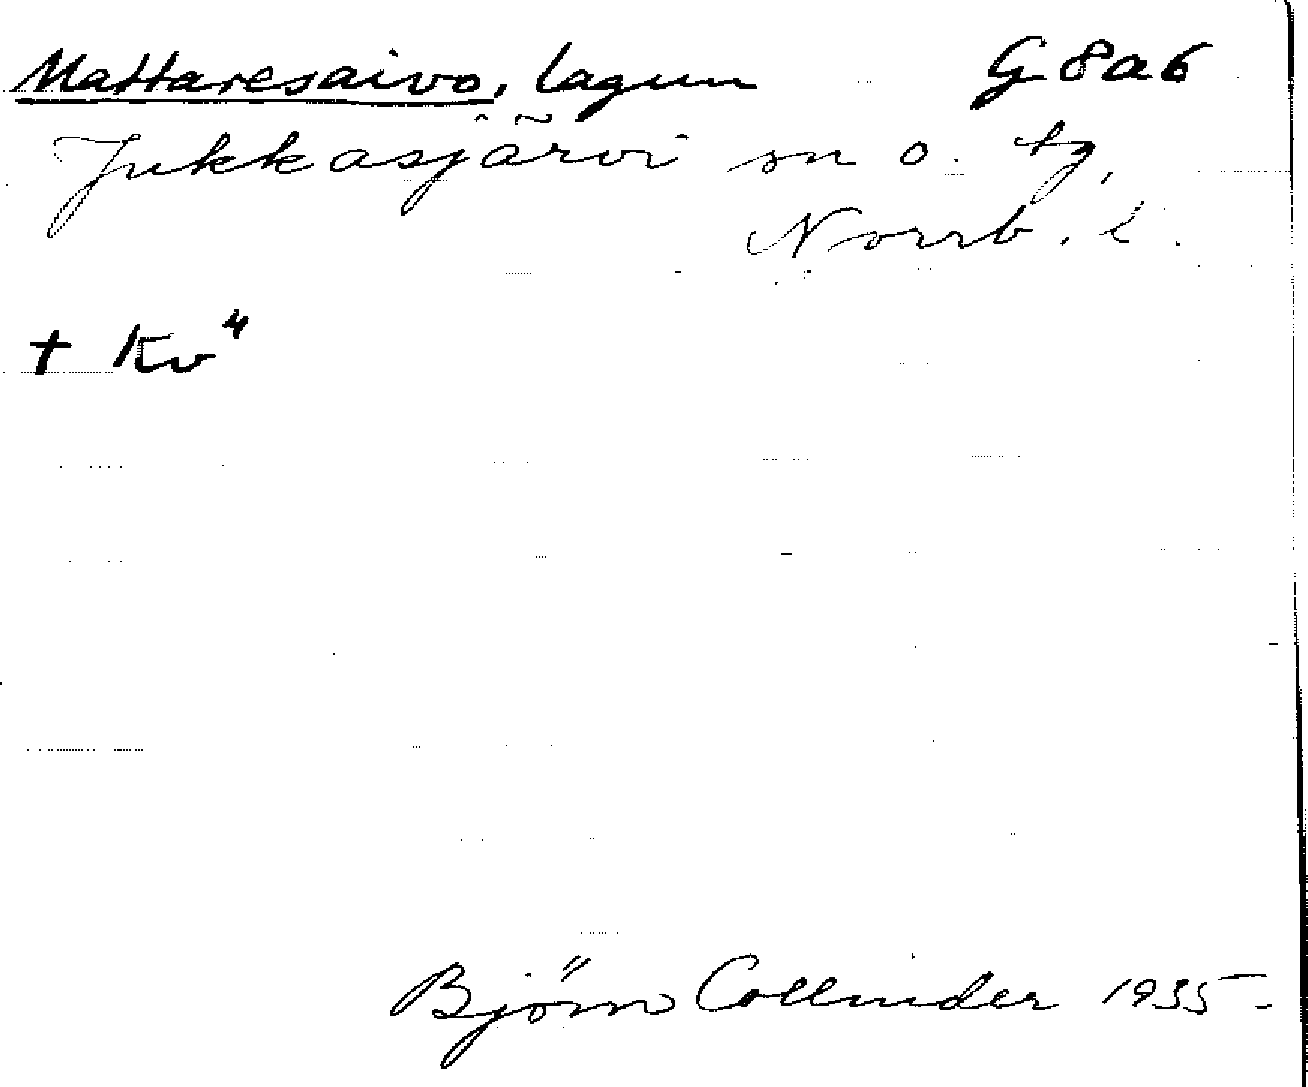 Mattaresaivo, lagun G 8 a 6
Jukkasjärvi sn o. tg,
Norrb. l.
+ Kv"
Björn Collinder 1935